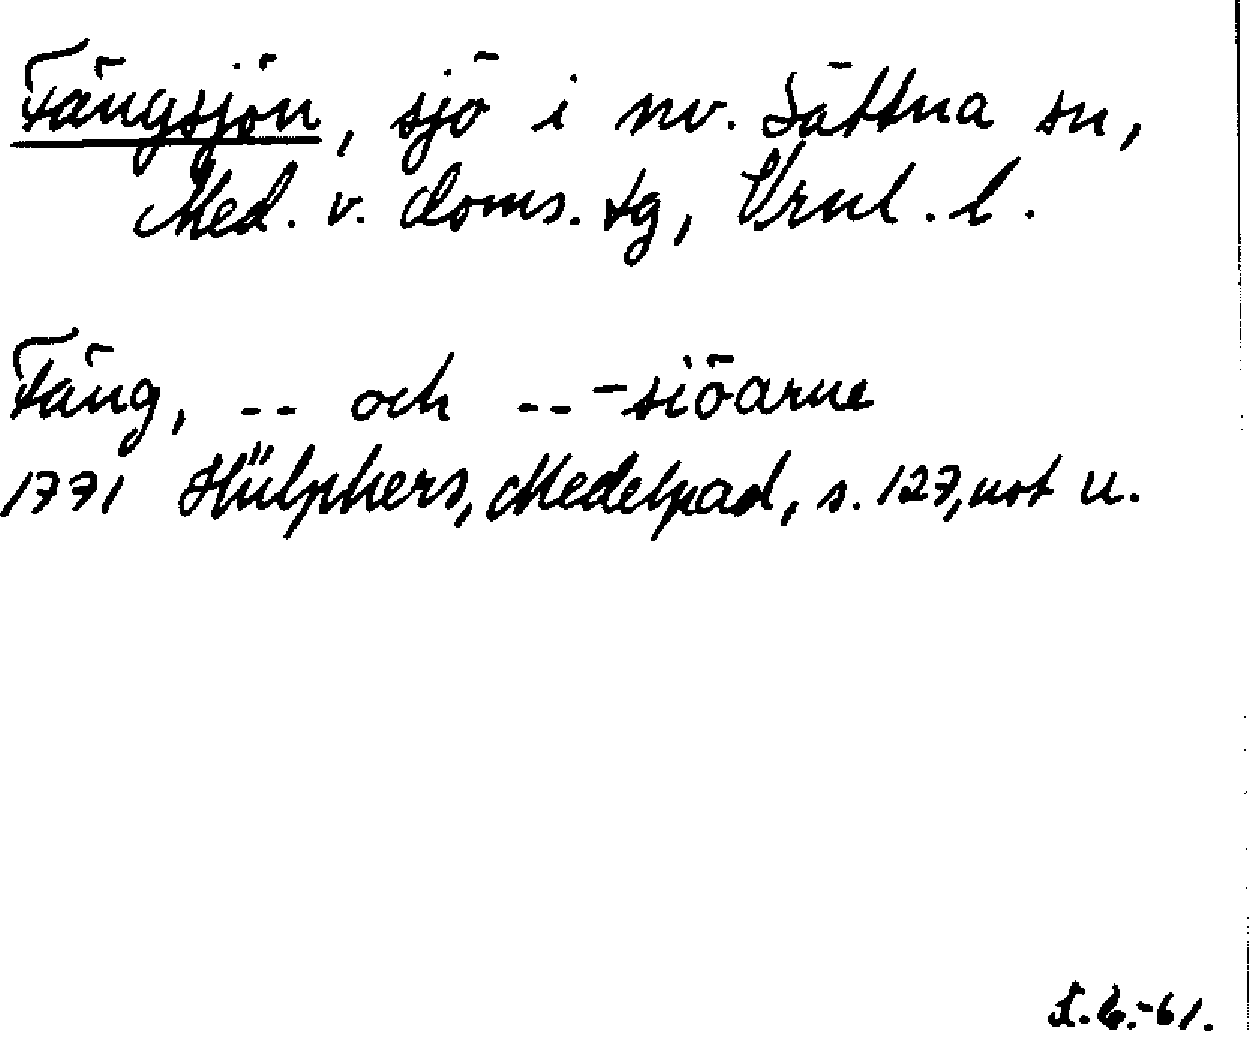 Fängsjön, sjö i nv. Sättna sn,
Med. v. doms. tg, Vrnl. l.
Fäng, -- och -- -siöarne
1771 Hülphers, Medelpad, s. 127, not u.
-61.